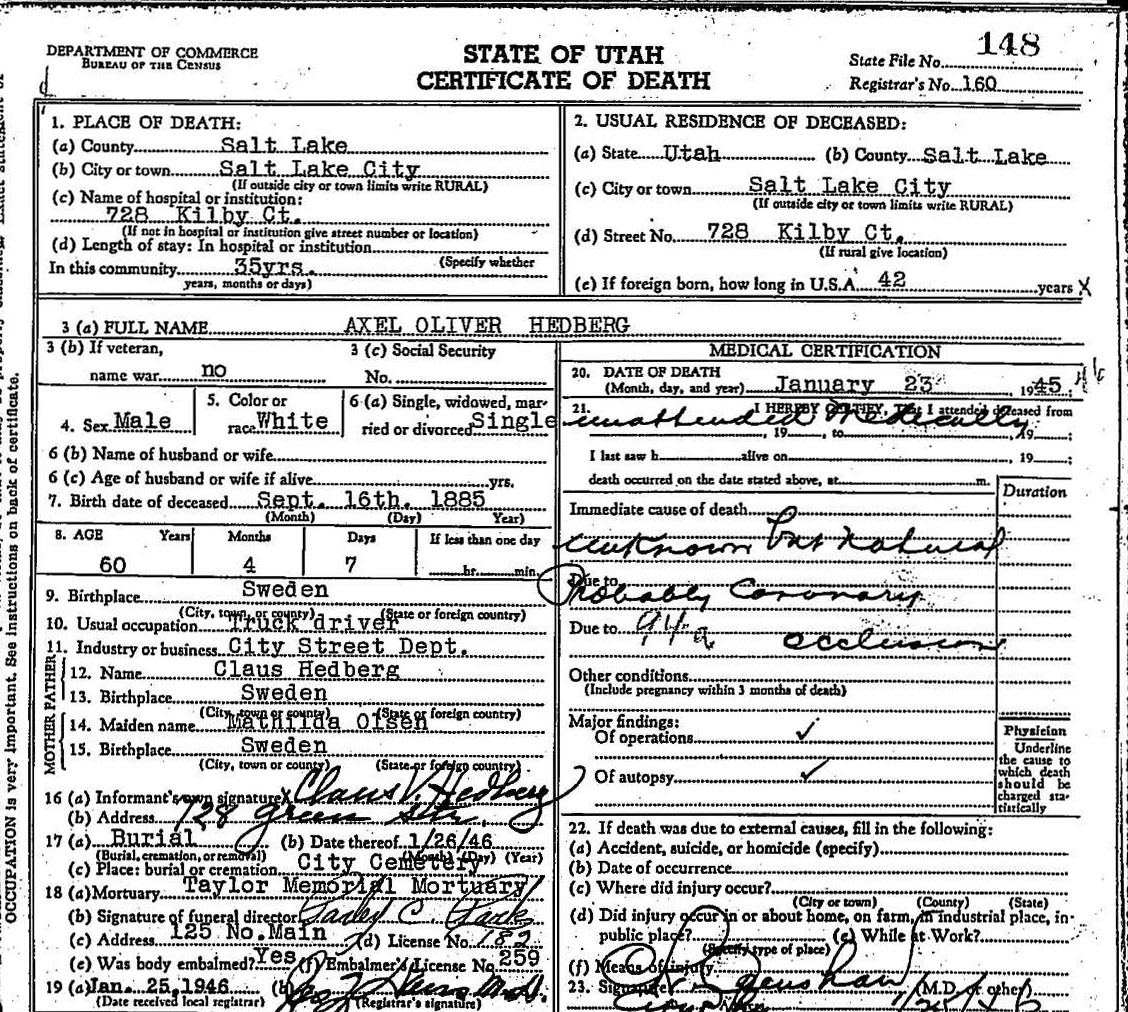 148
DEPARTMENT OF COMMERCE
BUREAU OF THE CENSUS
STATE OF UTAH
CERTIFICATE OF DEATH
State File No.
Registrar's No. 160
1. PLACE OF DEATH:
(a) County Salt Lake
(b) City or town Salt Lake City
(If outside city or town limits write RURAL)
(c) Name of hospital or institution:
728 Kilby Ct.
(If not in hospital or institution give street number or location)
(d) Length of stay: In hospital or institution
(Specify whether
In this community 35yrs.
years, months or days)
2. USUAL RESIDENCE OF DECEASED:
(a) State Utah (b) County Salt Lake
(c) City or town Salt Lake City
(If outside city or town limits write RURAL)
(d) Street No. 728 Kilby Ct.
(If rural give location)
(e) If foreign born, how long in U.S.A. 42 years X
3 (a) FULL NAME AXEL OLIVER HEDBERG
3 (b) If veteran,
name war no
3 (c) Social Security
No.
4. Sex Male
5. Color or
race White
6 (a) Single, widowed, mar-
ried or divorced Single
6 (b) Name of husband or wife
6 (c) Age of husband or wife if alive yrs.
7. Birth date of deceased Sept. 16th. 1885
(Month) (Day) Year)
8. AGE Years Months Days If less than one day
60 4 7 hr. min.
9. Birthplace Sweden
(City, town, or county) (State or foreign country)
10. Usual occupation Truck driver
11. Industry or business City Street Dept.
FATHER
12. Name Claus Hedberg
13. Birthplace Sweden
(City, town or county) (State or foreign country)
MOTHER
14. Maiden name Mathilda Olsen
15. Birthplace Sweden
(City, town or county) (State or foreign country)
16 (a) Informant's own signature X Claus V. Hedberg
(b) Address 728 Green Str.
17 (a) Burial (b) Date thereof 1/26/46
(Burial, cremation, or removal) (Month) (Day) (Year)
(c) Place: burial or cremation City Cemetery
18 (a) Mortuary Taylor Memorial Mortuary
(b) Signature of funeral director
(c) Address 125 No. Main (d) License No. 182
(e) Was body embalmed? Yes (f) Embalmer's License No. 259
19 (a) Jan. 25, 1946 (b)
(Date received local registrar) (Registrar's signature)
MEDICAL CERTIFICATION
20. DATE OF DEATH
(Month, day, and year) January 23 1945 46
21. I HEREBY CERTIFY, That I attended deceased from
unattended Medically
, 19 , to , 19 ;
I last saw h alive on , 19 ;
death occurred on the date stated above, at m.
Duration
Immediate cause of death
unknown but natural
Due to
Probably Coronary
Due to 94a occlusion
Other conditions
(Include pregnancy within 3 months of death)
Major findings:
Of operations ✓
Of autopsy ✓
Physician
Underline
the cause to
which death
should be
charged sta-
tistically
22. If death was due to external causes, fill in the following:
(a) Accident, suicide, or homicide (specify)
(b) Date of occurrence
(c) Where did injury occur?
(City or town) (County) (State)
(d) Did injury occur in or about home, on farm, in industrial place, in-
public place? (e) While at Work?
(Specify type of place)
(f) Means of injury
23. Signature (M.D. or other)
Address
OCCUPATION is very important. See instructions on back of certificate.